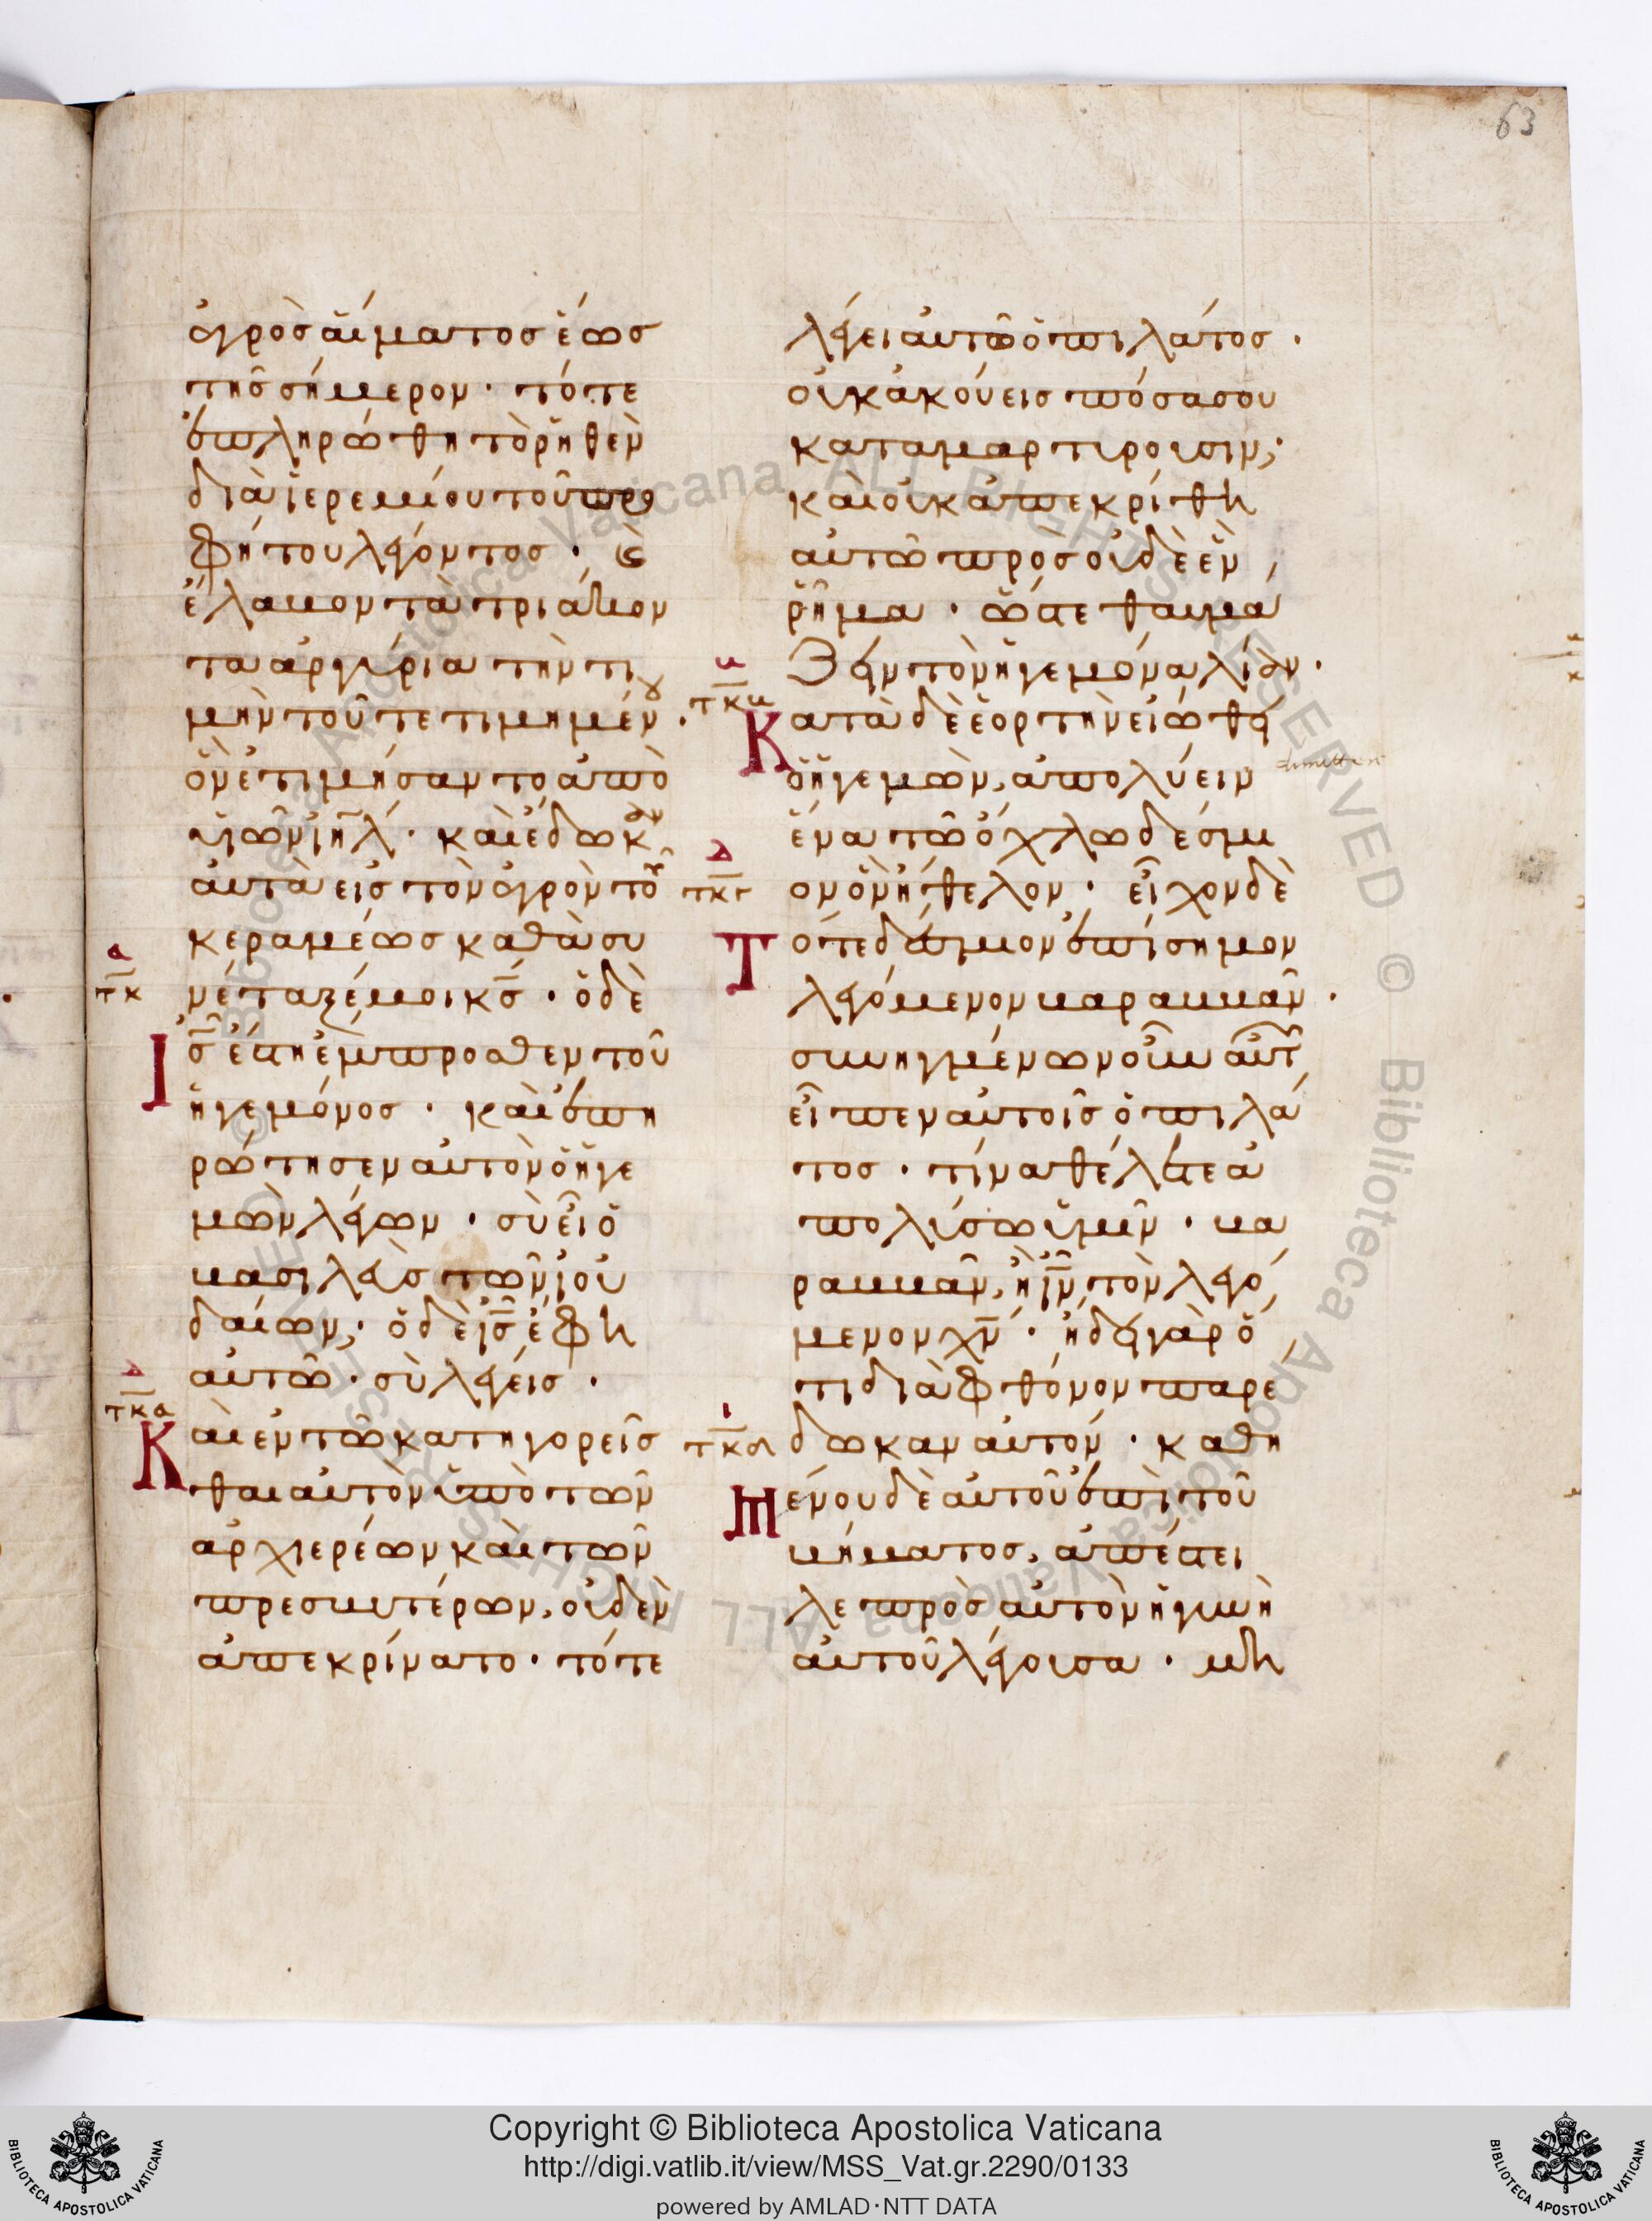 63
ἀγρὸς αἵματος ἕως
τῆς σήμερον · τότε
ἐπληρώθη τὸ ῥηθὲν
διὰ ἱερεμίου τοῦ προ
φήτου λέγοντος · καὶ
ἔλαβον τὰ τριάκον
τα ἀργύρια τὴν τι
μὴν τοῦ τετιμημένου ·
ὃν ἐτιμήσαντο ἀπὸ
υἱῶν ιηλ · καὶ ἔδωκαν
αὐτὰ εἰς τὸν ἀγρὸν τοῦ
κεραμέως καθὼς συ
νέταξέ μοι κς · ὁ δὲ
Ις ἔστη ἔμπροσθεν τοῦ
ἡγεμόνος · καὶ ἐπη
ρώτησεν αὐτὸν ὁ ἡγε
μὼν λέγων · σὺ εἶ ὁ
βασιλεὺς τῶν ἰου
δαίων; · ὁ δὲ ις ἔφη
αὐτῶ · σὺ λέγεις ·
Καὶ ἐν τῶ κατηγορεῖσ
θαι αὐτὸν ὑπὸ τῶν
ἀρχιερέων καὶ τῶν
πρεσβυτέρων, οὐδὲν
ἀπεκρίνατο · τότε
τκ
τκα
λέγει αὐτῶ ὁ πιλάτος ·
οὐκ ἀκούεις πόσα σου
καταμαρτυροῦσιν;
καὶ οὐκ ἀπεκρίθη
αὐτῶ πρὸς οὐδὲ ἓν
ῥῆμα · ὥστε θαυμά
ζειν τὸν ἡγεμόνα λίαν ·
Κατὰ δὲ ἑορτὴν εἰώθει
ὁ ἡγεμὼν, ἀπολύειν
ἕνα τῶ ὄχλω δέσμι
ον ὃν ἤθελον · εἶχον δὲ
Τότε δέσμιον ἐπίσημον
λεγόμενον βαραββᾶν ·
συνηγμένων οὖν αὐτῶν
εἶπεν αὐτοῖς ὁ πιλά
τος · τίνα θέλετε ἀ
πολύσω ὑμῖν · βα
ραββᾶν, ἢ ιν τὸν λεγό
μενον χν · ἤδει γὰρ ὅ
τι διὰ φθόνον παρέ
δωκαν αὐτόν · καθη
Μένου δὲ αὐτοῦ ἐπὶ τοῦ
βήματος, ἀπέστει
λε πρὸς αὐτὸν ἡ γυνὴ
αὐτοῦ λέγουσα · μὴ
τκβ
τκγ
τκδ
Copyright © Biblioteca Apostolica Vaticana
http://digi.vatlib.it/view/MSS_Vat.gr.2290/0133
powered by AMLAD·NTT DATA
BIBLIOTECA APOSTOLICA VATICANA
BIBLIOTECA APOSTOLICA VATICANA